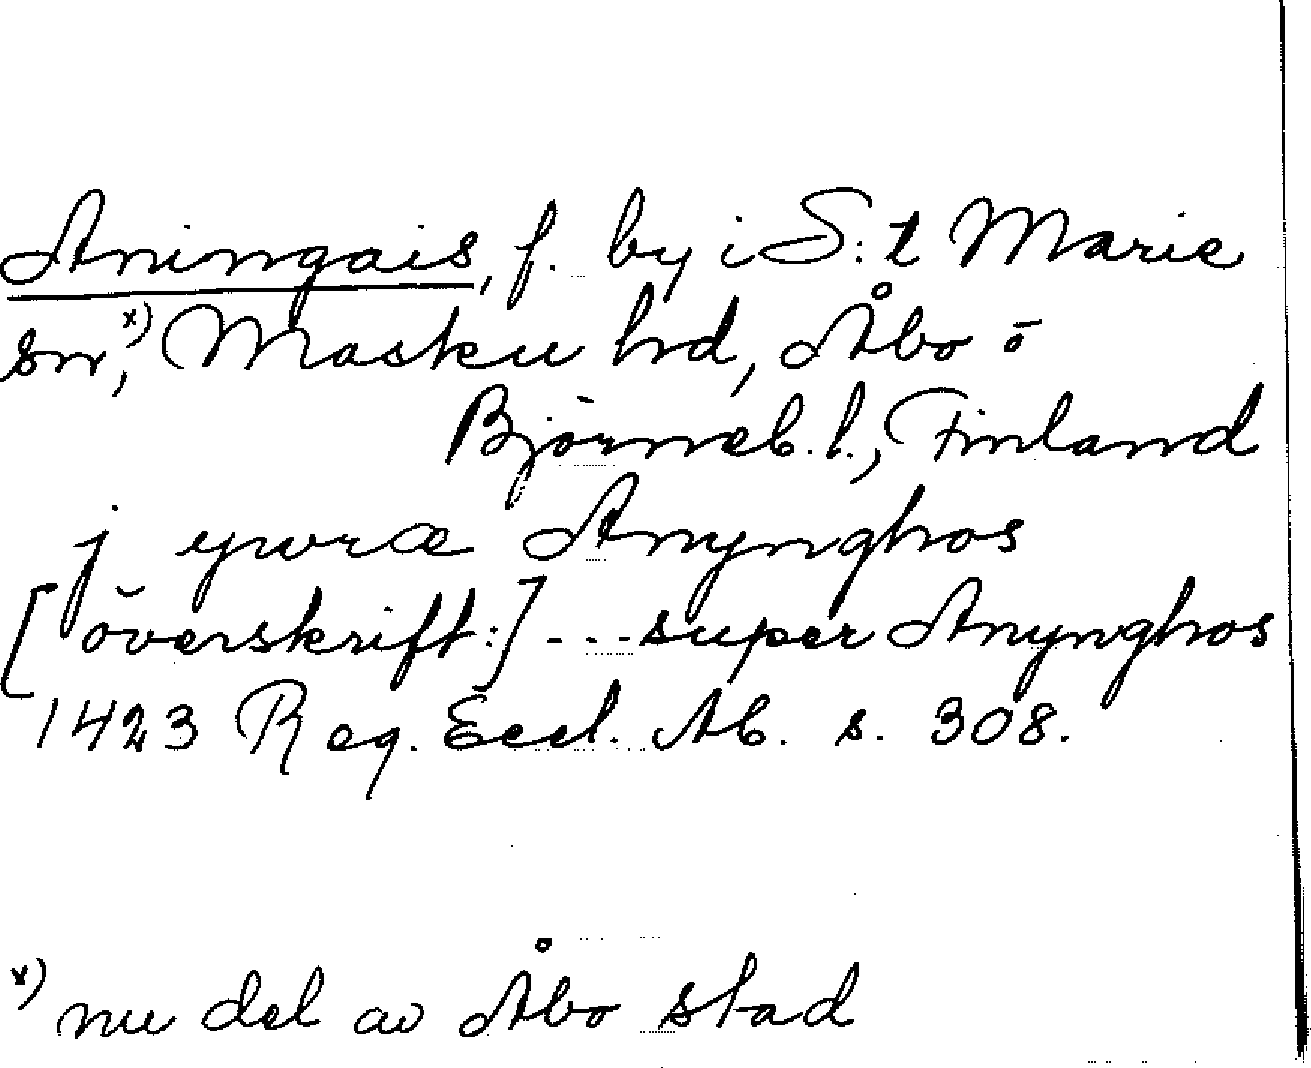 Aningais, f. by i S:t Marie
sn,x) Masku hd, Åbo o
Björneb. l., Finland
j ywræ Anynghos
[överskrift:] --- super Anynghos
1423 Reg. Eccl. Ab. s. 308.
x) nu del av Åbo stad